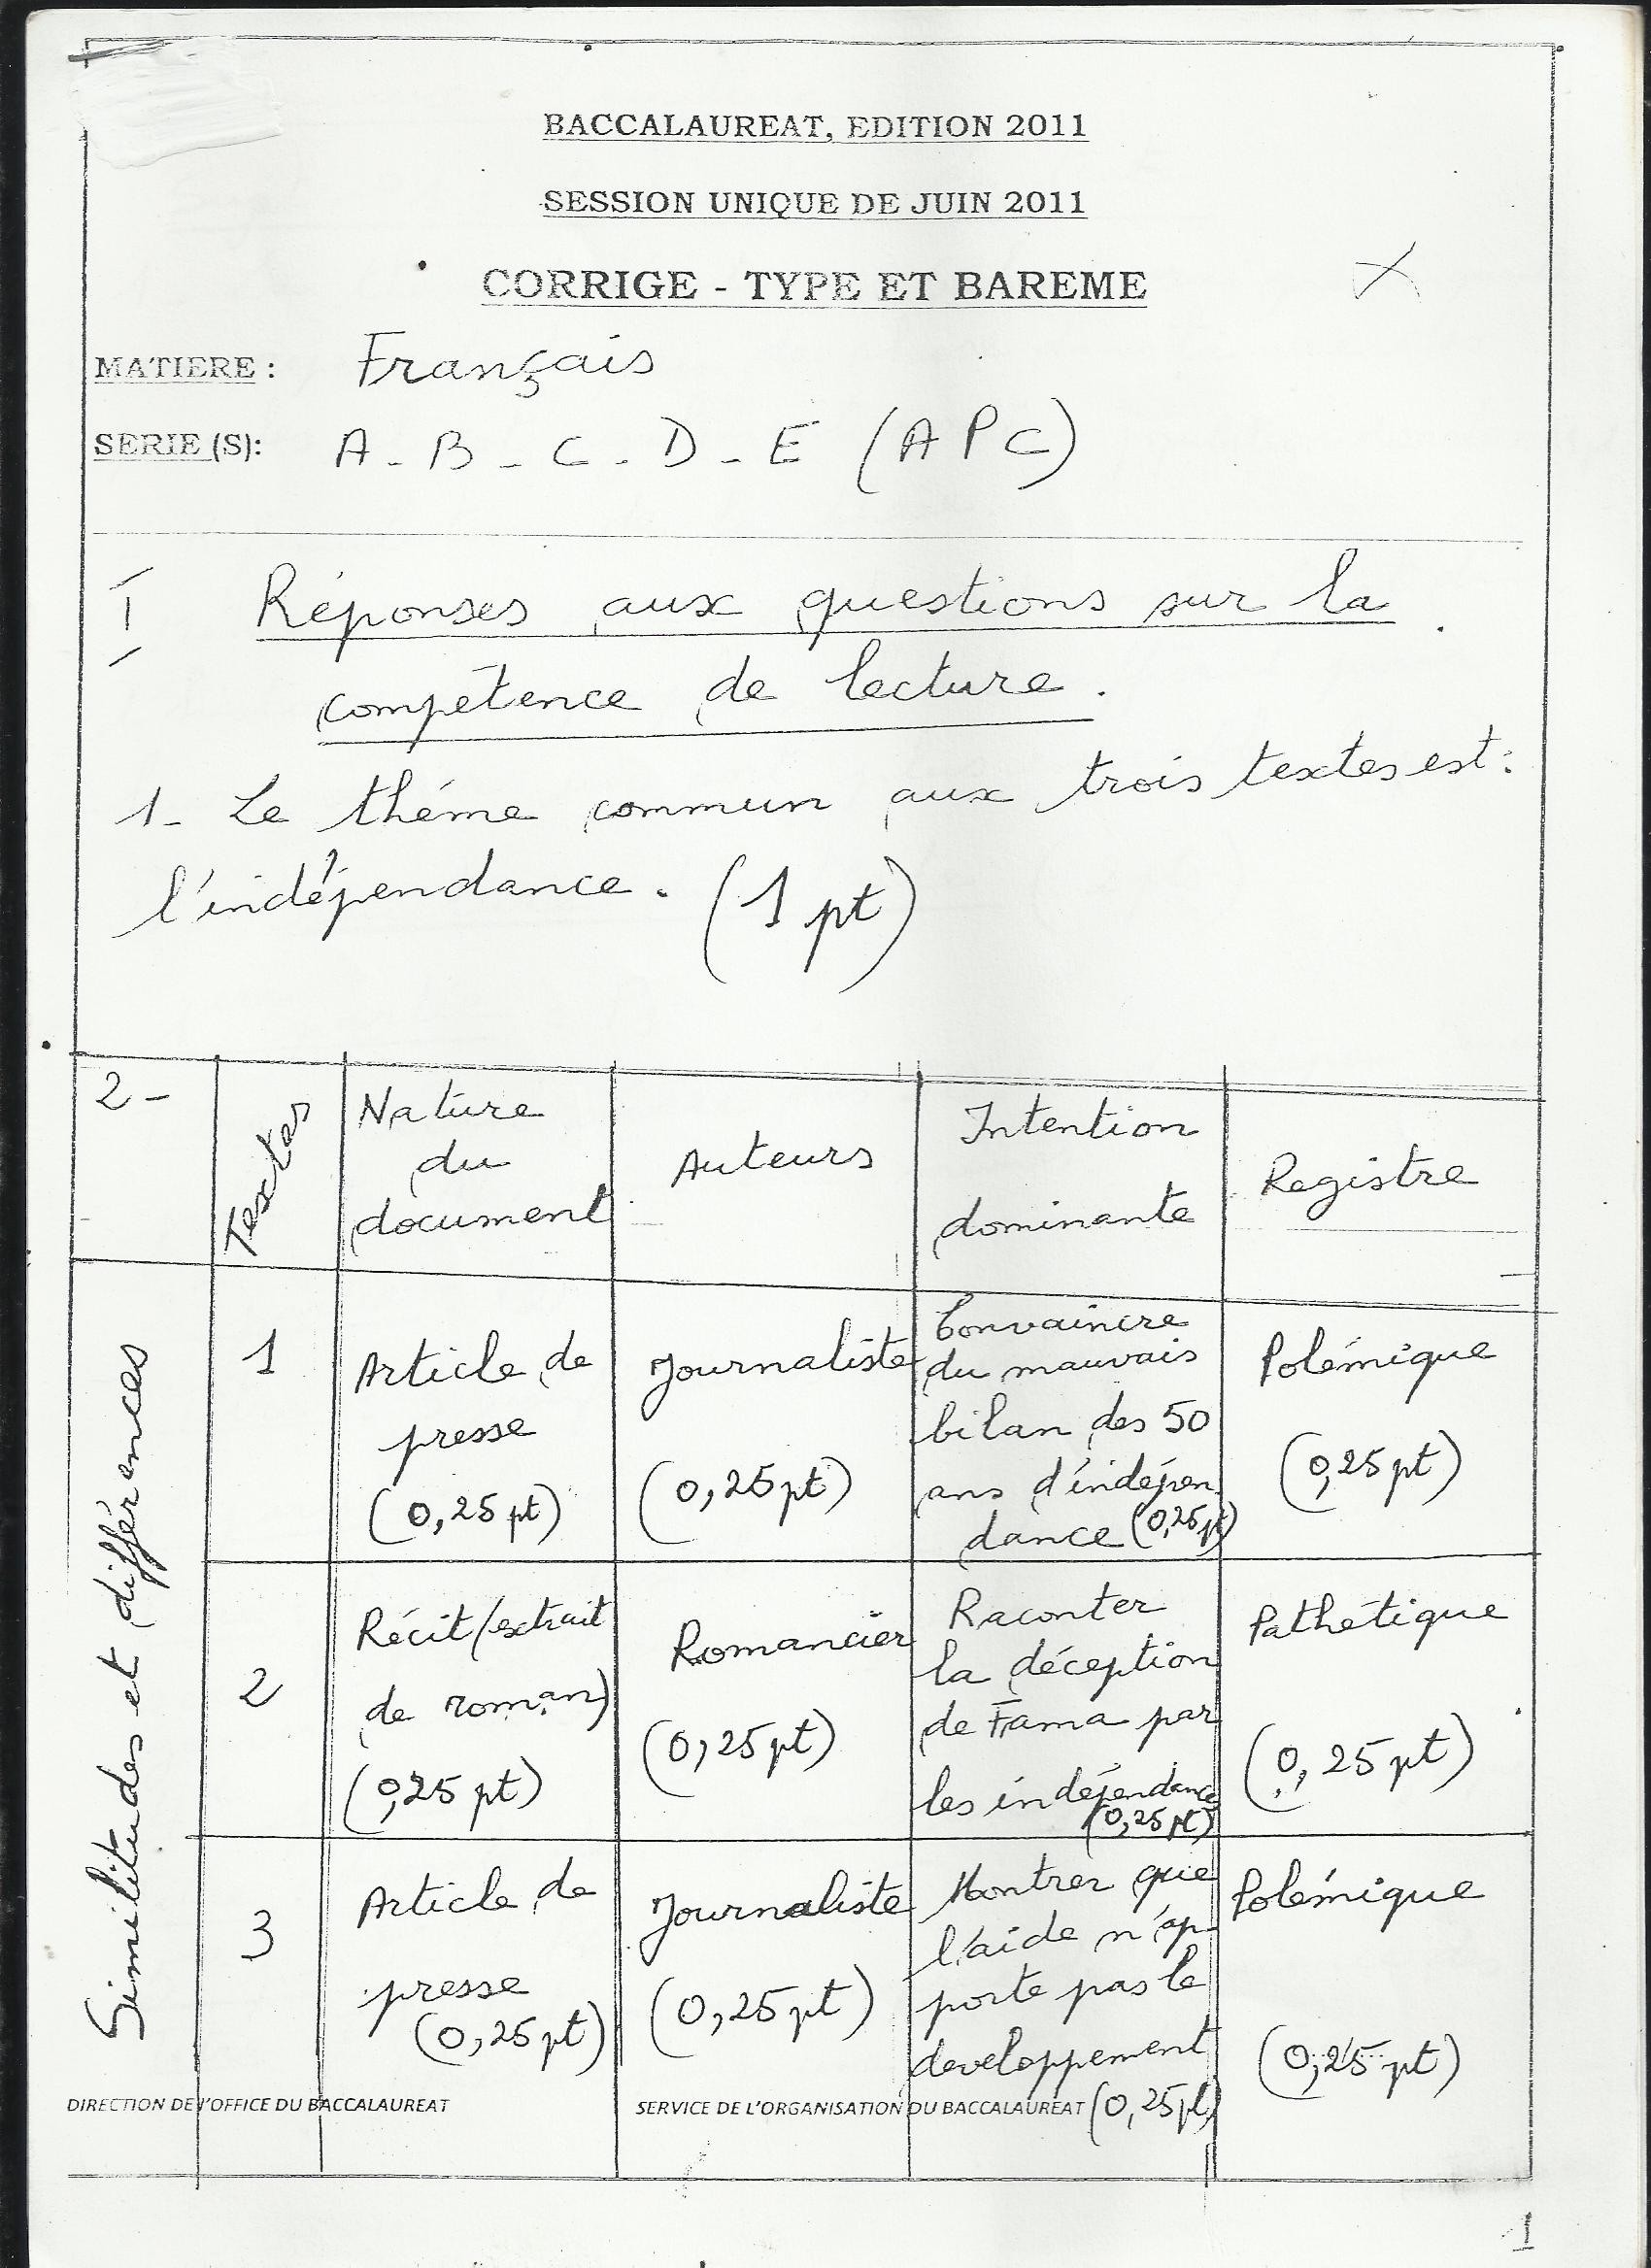 BACCALAUREAT, EDITION 2011
SESSION UNIQUE DE JUIN 2011
CORRIGE - TYPE ET BAREME
MATIERE : Français
SERIE (S): A - B - C - D - E (APC)
I Réponses aux questions sur la
compétence de lecture.
1- Le thème commun aux trois textes est :
l'indépendance. (1 pt)
2-
Textes
Nature
du
document
Auteurs
Intention
dominante
Registre
Similitudes et différences
1
Article de
presse
(0,25 pt)
Journaliste
(0,25 pt)
Convaincre
du mauvais
bilan des 50
ans d'indépen
dance (0,25 pt)
Polémique
(0,25 pt)
2
Récit (extrait
de roman)
(0,25 pt)
Romancier
(0,25 pt)
Raconter
la déception
de Fama par
les indépendances
(0,25 pt)
Pathétique
(0,25 pt)
3
Article de
presse
(0,25 pt)
Journaliste
(0,25 pt)
Montrer que
l'aide n'ap-
porte pas le
developpement
(0,25 pt)
Polémique
(0,25 pt)
DIRECTION DE L'OFFICE DU BACCALAUREAT
SERVICE DE L'ORGANISATION DU BACCALAUREAT
1